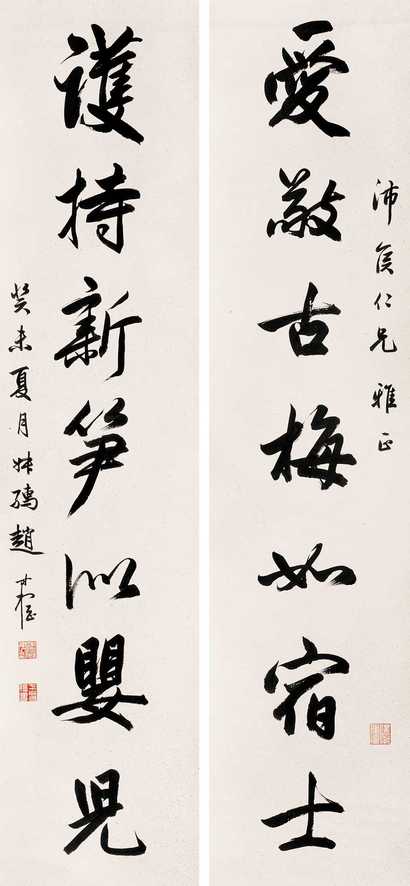 沛侯仁兄雅正
愛敬古梅如宿士
護持新笋似嬰兒
癸未夏月叔孺趙時棡